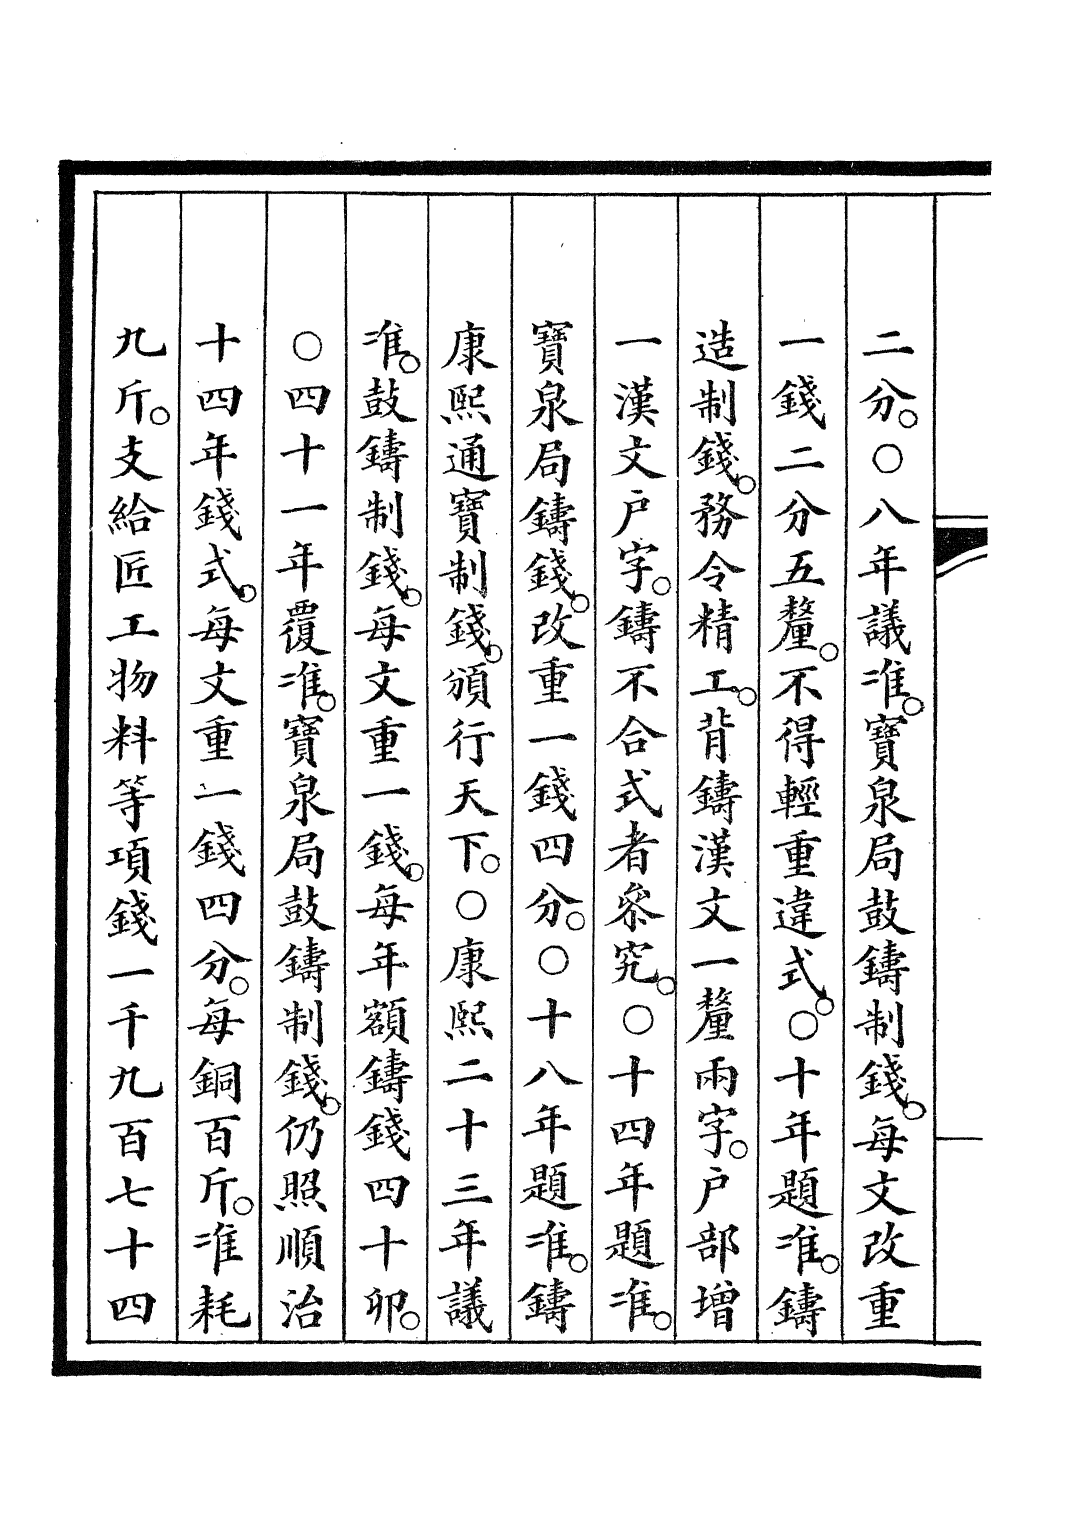 二分。○八年議准。寶泉局鼓鑄制錢。每文改重
一錢二分五釐。不得輕重違式。○十年題准。鑄
造制錢。務令精工。背鑄漢文一釐兩字。戶部增
一漢文戶字。鑄不合式者叅究。○十四年題准。
寶泉局鑄錢。改重一錢四分。○十八年題准。鑄
康熙通寶制錢。頒行天下。○康熙二十三年議
准。鼓鑄制錢。每文重一錢。每年額鑄錢四十卯。
○四十一年覆准。寶泉局鼓鑄制錢。仍照順治
十四年錢式。每文重一錢四分。每銅百斤。准耗
九斤。支給匠工物料等項錢一千九百七十四